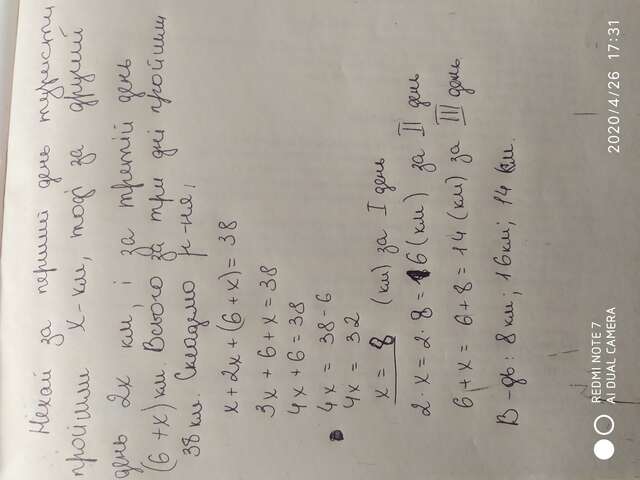 Нехай за перший день туристи
пройшли x - км, тоді за другий
день 2x км, і за третій день
(6+x) км. Всього за три дні пройшли
38 км. Складемо р-ня;
x + 2x + (6+x) = 38
3x + 6 + x = 38
4x + 6 = 38
4x = 38 - 6
4x = 32
x = 8 (км) за I день
2 · x = 2 · 8 = 16 (км) за II день
6 + x = 6 + 8 = 14 (км) за III день
В-дь: 8 км; 16 км; 14 км.
REDMI NOTE 7
AI DUAL CAMERA
2020/4/26 17:31